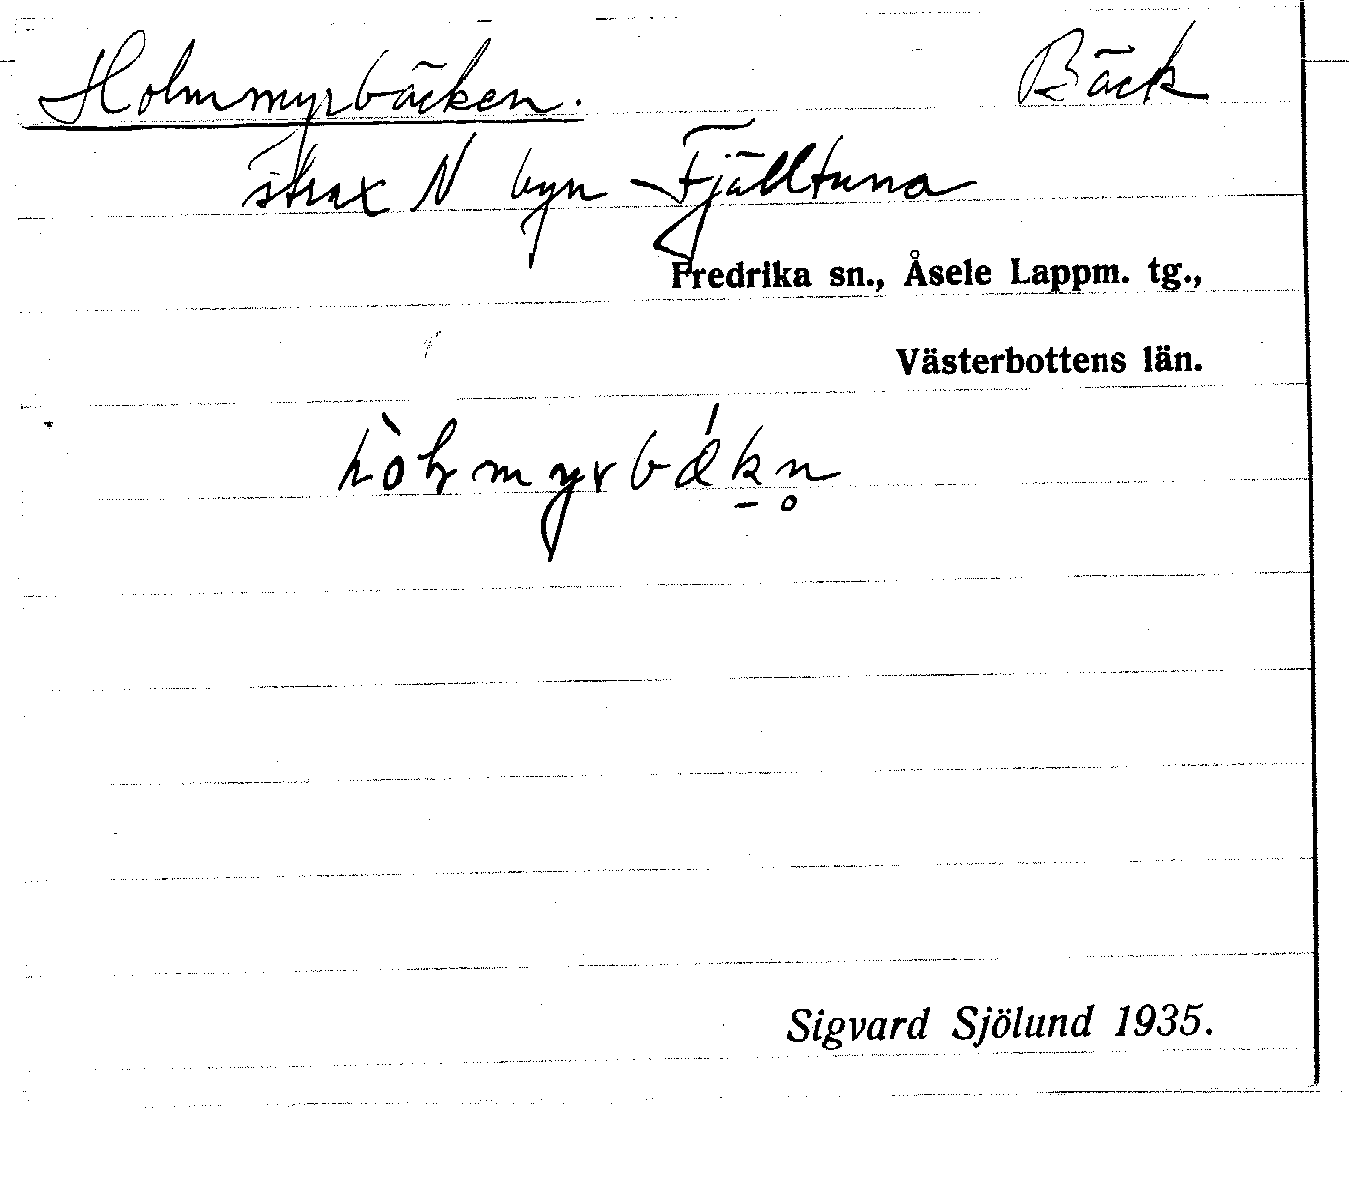 Holmmyrbäcken. Bäck
strax N byn Fjälltuna
Fredrika sn., Åsele Lappm. tg.,
Västerbottens län.
Sigvard Sjölund 1935.